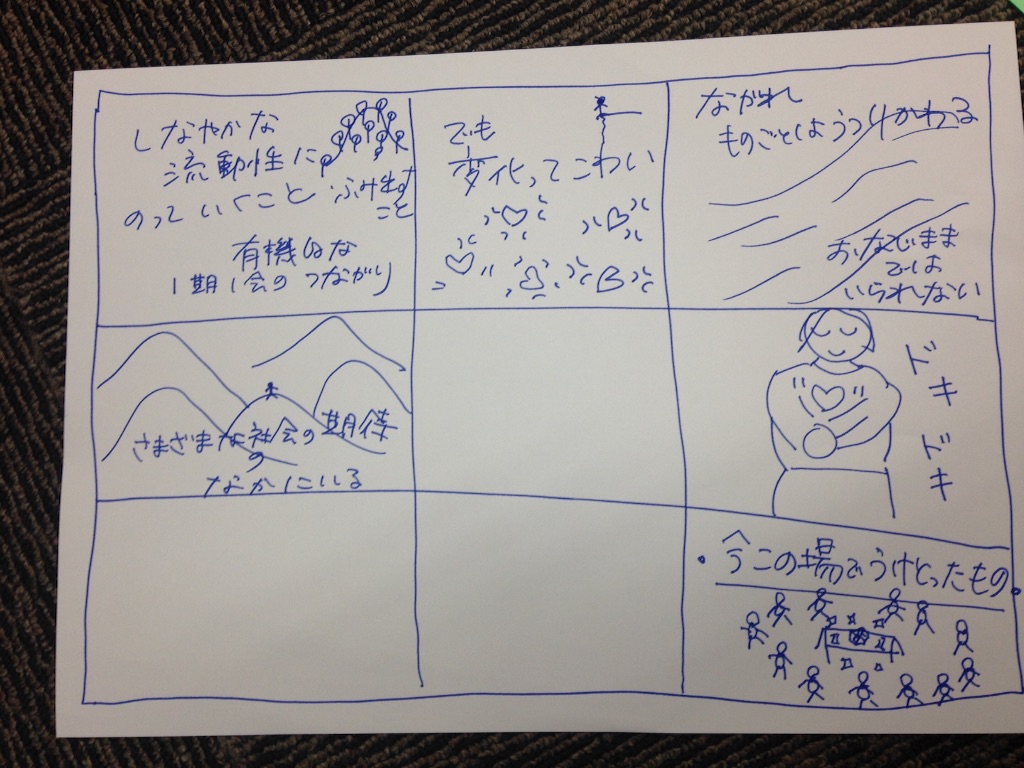 しなやかな
流動性に
のっていくこと
ふみ出す
こと
有機的な
1期1会のつながり
でも
変化ってこわい
ながれ
ものごとしようつりかわる
おなじまま
では
いられない
さまざまな社会の期待
の
なかにいる
ドキ
ドキ
・今この場でうけとったもの。